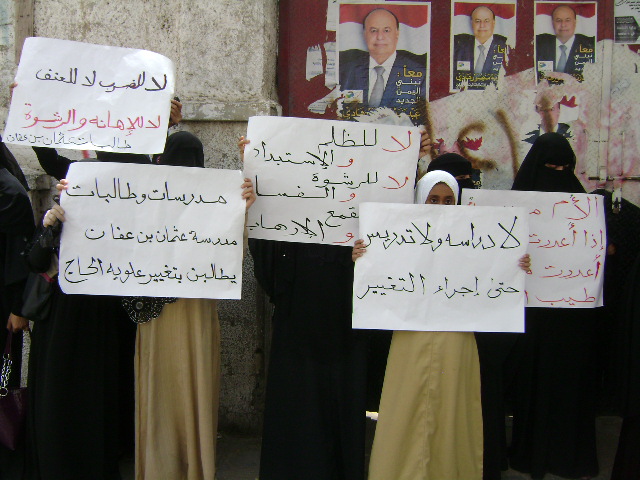 لا للضرب لا للعنف
لا للإهانه والرشوة
طالبات عثمان بن عفان
مدرسات وطالبات
مدرسة عثمان بن عفان
يطالبن بتغيير علويه الحاج
لا للظلم
والإستبداد
لا للرشوة
والفسا
قمع
والإرهاب
لا دراسه ولا تدريس
حتى إجراء التغيير
الأم
إذا أعددت
أعددت
طيب ا
معاً
نبني
اليمن
الجديد